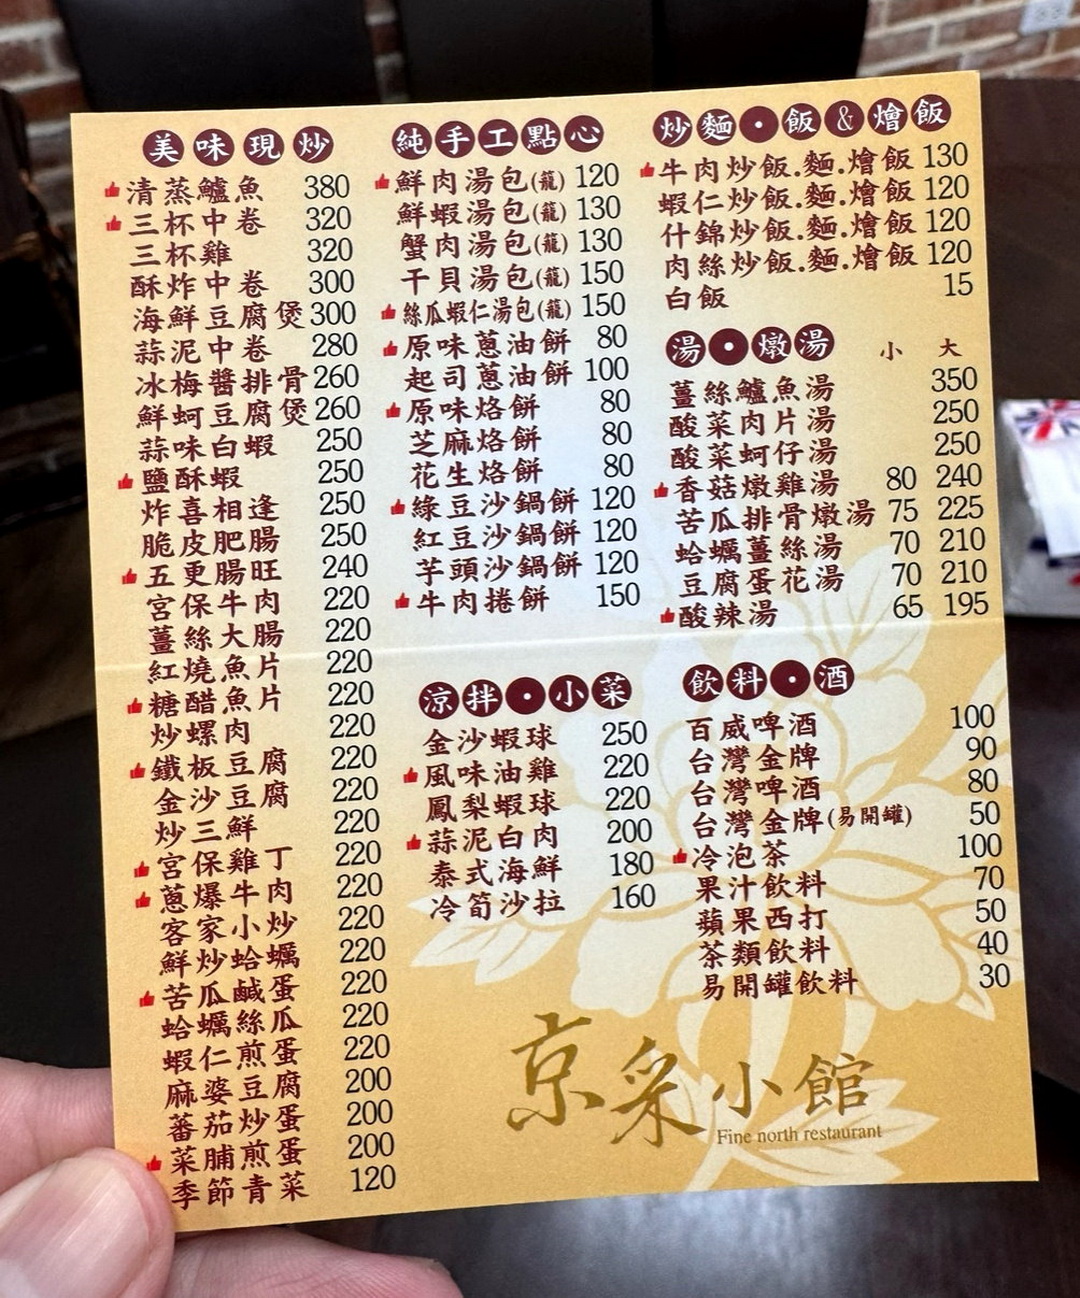 美味現炒
清蒸鱸魚 380
三杯中卷 320
三杯雞 320
酥炸中卷 300
海鮮豆腐煲 300
蒜泥中卷 280
冰梅醬排骨 260
鮮蚵豆腐煲 260
蒜味白蝦 250
鹽酥蝦 250
炸喜相逢 250
脆皮肥腸 250
五更腸旺 240
宮保牛肉 220
薑絲大腸 220
紅燒魚片 220
糖醋魚片 220
炒螺肉 220
鐵板豆腐 220
金沙豆腐 220
炒三鮮 220
宮保雞丁 220
蔥爆牛肉 220
客家小炒 220
鮮炒蛤蠣 220
苦瓜鹹蛋 220
蛤蠣絲瓜 220
蝦仁煎蛋 220
麻婆豆腐 200
蕃茄炒蛋 200
菜脯煎蛋 200
季節青菜 120
純手工點心
鮮肉湯包(籠) 120
鮮蝦湯包(籠) 130
蟹肉湯包(籠) 130
干貝湯包(籠) 150
絲瓜蝦仁湯包(籠) 150
原味蔥油餅 80
起司蔥油餅 100
原味烙餅 80
芝麻烙餅 80
花生烙餅 80
綠豆沙鍋餅 120
紅豆沙鍋餅 120
芋頭沙鍋餅 120
牛肉捲餅 150
涼拌•小菜
金沙蝦球 250
風味油雞 220
鳳梨蝦球 220
蒜泥白肉 200
泰式海鮮 180
冷筍沙拉 160
炒麵•飯&燴飯
牛肉炒飯.麵.燴飯 130
蝦仁炒飯.麵.燴飯 120
什錦炒飯.麵.燴飯 120
肉絲炒飯.麵.燴飯 120
白飯 15
湯•燉湯 小 大
薑絲鱸魚湯 350
酸菜肉片湯 250
酸菜蚵仔湯 250
香菇燉雞湯 80 240
苦瓜排骨燉湯 75 225
蛤蠣薑絲湯 70 210
豆腐蛋花湯 70 210
酸辣湯 65 195
飲料•酒
百威啤酒 100
台灣金牌 90
台灣啤酒 80
台灣金牌(易開罐) 50
冷泡茶 100
果汁飲料 70
蘋果西打 50
茶類飲料 40
易開罐飲料 30
京采小館
Fine north restaurant